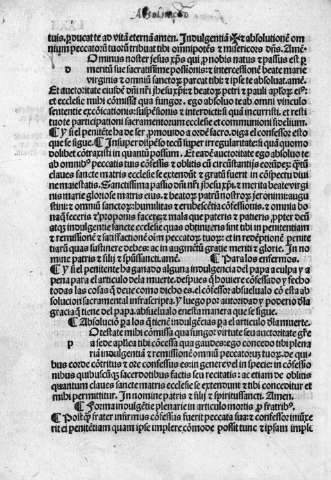 Absolució
tuis. ꝑducat te ad vitã eternã amen. Indulgentiã ✠ et absolutionẽ om
niũ peccatorũ tuorũ tribuat tibi omnipotẽs et misericors dñs. Amẽ
Ominus noster jesus xp̃s qui ꝓ nobis natus et passus est ꝑ
d meritũ sue sacratissime passionis: et intercessionẽ beate marie
virginis et omniũ sanctoꝝ parcat tibi: et ip̃se te absoluat. amẽ.
Et auctoritate eiusdẽ dñi nr̃i jhesu xp̃i: et beatoꝝ petri et pauli apl̃oꝝ eiꝰ:
et ecclesie mihi cõmissa qua fungor. ego absoluo te ab omni vinculo
sententie excõicationis: suspẽsionis et interdicti si quã incurristi. et resti
tuo te participationi sacramentorum ecclesie et communioni fidelium.
¶ Y si el penitẽte ha de ser ꝓmouido a ordẽ sacro. diga el confessor esto
que se sigue. ¶ Insuper dispẽso tecũ super irregularitate: si quã quomo
dolibet cõtraxisti in quantũ possum. Et eadẽ auctoritate ego absoluo te
ab omnibꝰ peccatis tuis cõfessis et oblitis
claues sancte matris ecclesie se extendũt et gratũ fuerit in cõspectu diui
ne maiestatis. Sanctissima passio dñi nr̃i jhesu xp̃i: et merita beate virgi
nis marie gloriose matris eius. et beatoꝝ patrũ nostroꝝ jeronimi: augu
stini: et omniũ sanctoꝝ: humilitas et erubescẽtia cõfessionis. et omnia bo
na q̃ feceris et ꝓponis facere: et mala que pateris et patieris, ꝓpter deũ
atqꝫ indulgentie sancte ecclesie quas obtinueris sint tibi in penitentiam
et remissionẽ et satisfactionẽ oĩm peccatoꝝ tuoꝝ: et in redẽptionẽ penite
tiarũ quas sustinere debes: ac in augmentũ gratie meriti et glorie. In no
mine patris et filij et sp̃ussancti. amẽ. ¶ Para los enfermos.
¶ Y si el penitente ha ganado alguna indulgencia del papa a culpa y a
pena para el articulo dela muerte. despues q̃ houiere cõfessado y fecho
todas las cosas q̃ deue como dicho es. el cõfessor absuelualo cõ esta ab
solucion sacramental infrascripta. Y luego por autoridad y poderio dla
gracia q̃ tiene del papa. absueluale en esta manera que se sigue.
¶ Absoluciõ ꝑa los q̃ tienẽ indulgẽcias ꝑa el articulo dla muerte.
Otestate mihi cõmissa qua fungor virtute seu auctoritate gr̃e
p a sede aplica tibi cõcessa qua gaudes: ego concedo tibi plena
ria indulgentiã et remissionẽ omniũ peccatorum tuoꝝ. de qui
bus corde cõtritus et ore confessus es: in genere vel in specie: in cõfessio
nibus quibuscũqꝫ sacerdotibus factis seu recitatis: ac etiam de oblitis
quantum claues sancte matris ecclesie se extendunt et tibi conceditur et
mihi permittitur. In nomine patris et filij et spiritussancti. Amen.
¶ Forma indulgẽtie plenarie in articulo mortis ꝓ fratribꝰ.
¶ Postq̃ frater infirmus cõfessus fuerit peccata sua: et confessor iniũxe
rit ei penitẽtiam quam ipse implere, cõmode possit tunc et ipsam impl